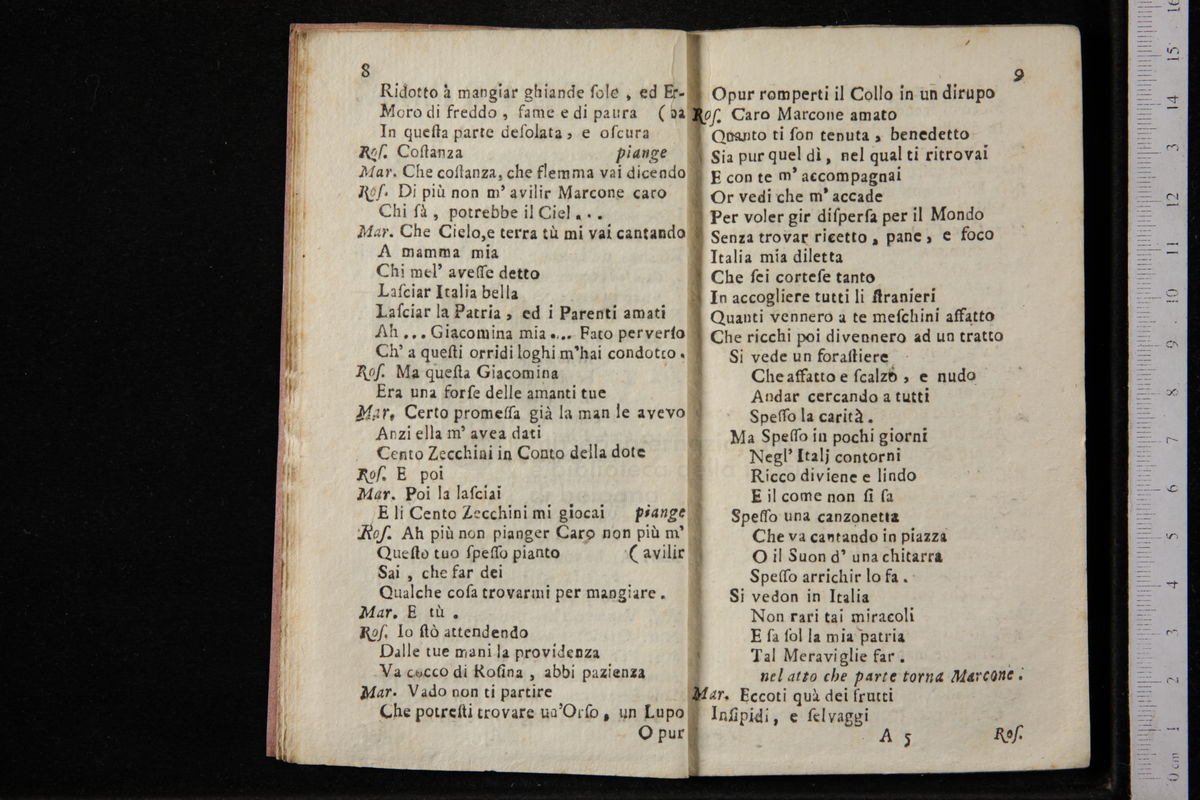 8
Ridotto à mangiar ghiande ſole , ed Er-
Moro di freddo , fame e di paura ( ba
In queſta parte deſolata , e oſcura
Roſ. Coſtanza piange
Mar. Che coſtanza, che flemma vai dicendo
Roſ. Di più non m' avilir Marcone caro
Chi ſà , potrebbe il Ciel . . .
Mar. Che Cielo,e terra tù mi vai cantando
A mamma mia
Chi mel' aveſſe detto
Laſciar Italia bella
Laſciar la Patria , ed i Parenti amati
Ah ... Giacomina mia .... Fato perverſo
Ch' a queſti orridi loghi m'hai condotto .
Roſ. Ma queſta Giacomina
Era una forſe delle amanti tue
Mar. Certo promeſſa già la man le avevo
Anzi ella m' avea dati
Cento Zecchini in Conto della dote
Roſ. E poi
Mar. Poi la laſciai
E li Cento Zecchini mi giocai piange
Roſ. Ah più non pianger Caro non più m'
Queſto tuo ſpeſſo pianto ( avilir
Sai , che far dei
Qualche coſa trovarmi per mangiare .
Mar. E tù .
Roſ. Io ſtò attendendo
Dalle tue mani la providenza
Va cocco di Roſina , abbi pazienza
Mar. Vado non ti partire
Che potreſti trovare un'Orſo , un Lupo
O pur
9
Opur romperti il Collo in un dirupo
Roſ. Caro Marcone amato
Quanto ti ſon tenuta , benedetto
Sia pur quel dì , nel qual ti ritrovai
E con te m' accompagnai
Or vedi che m' accade
Per voler gir diſperſa per il Mondo
Senza trovar ricetto , pane , e foco
Italia mia diletta
Che ſei corteſe tanto
In accogliere tutti li ſtranieri
Quanti vennero a te meſchini affatto
Che ricchi poi divennero ad un tratto
Si vede un foraſtiere
Che affatto e ſcalzo , e nudo
Andar cercando a tutti
Speſſo la carità .
Ma Speſſo in pochi giorni
Negl' Italj contorni
Ricco diviene e lindo
E il come non ſi ſa
Speſſo una canzonetta
Che va cantando in piazza
O il Suon d' una chitarra
Speſſo arrichir lo fa .
Si vedon in Italia
Non rari tai miracoli
E ſa ſol la mia patria
Tal Meraviglie far .
nel atto che parte torna Marcone .
Mar. Eccoti quà dei frutti
Inſipidi , e ſelvaggi
A 5 Roſ.